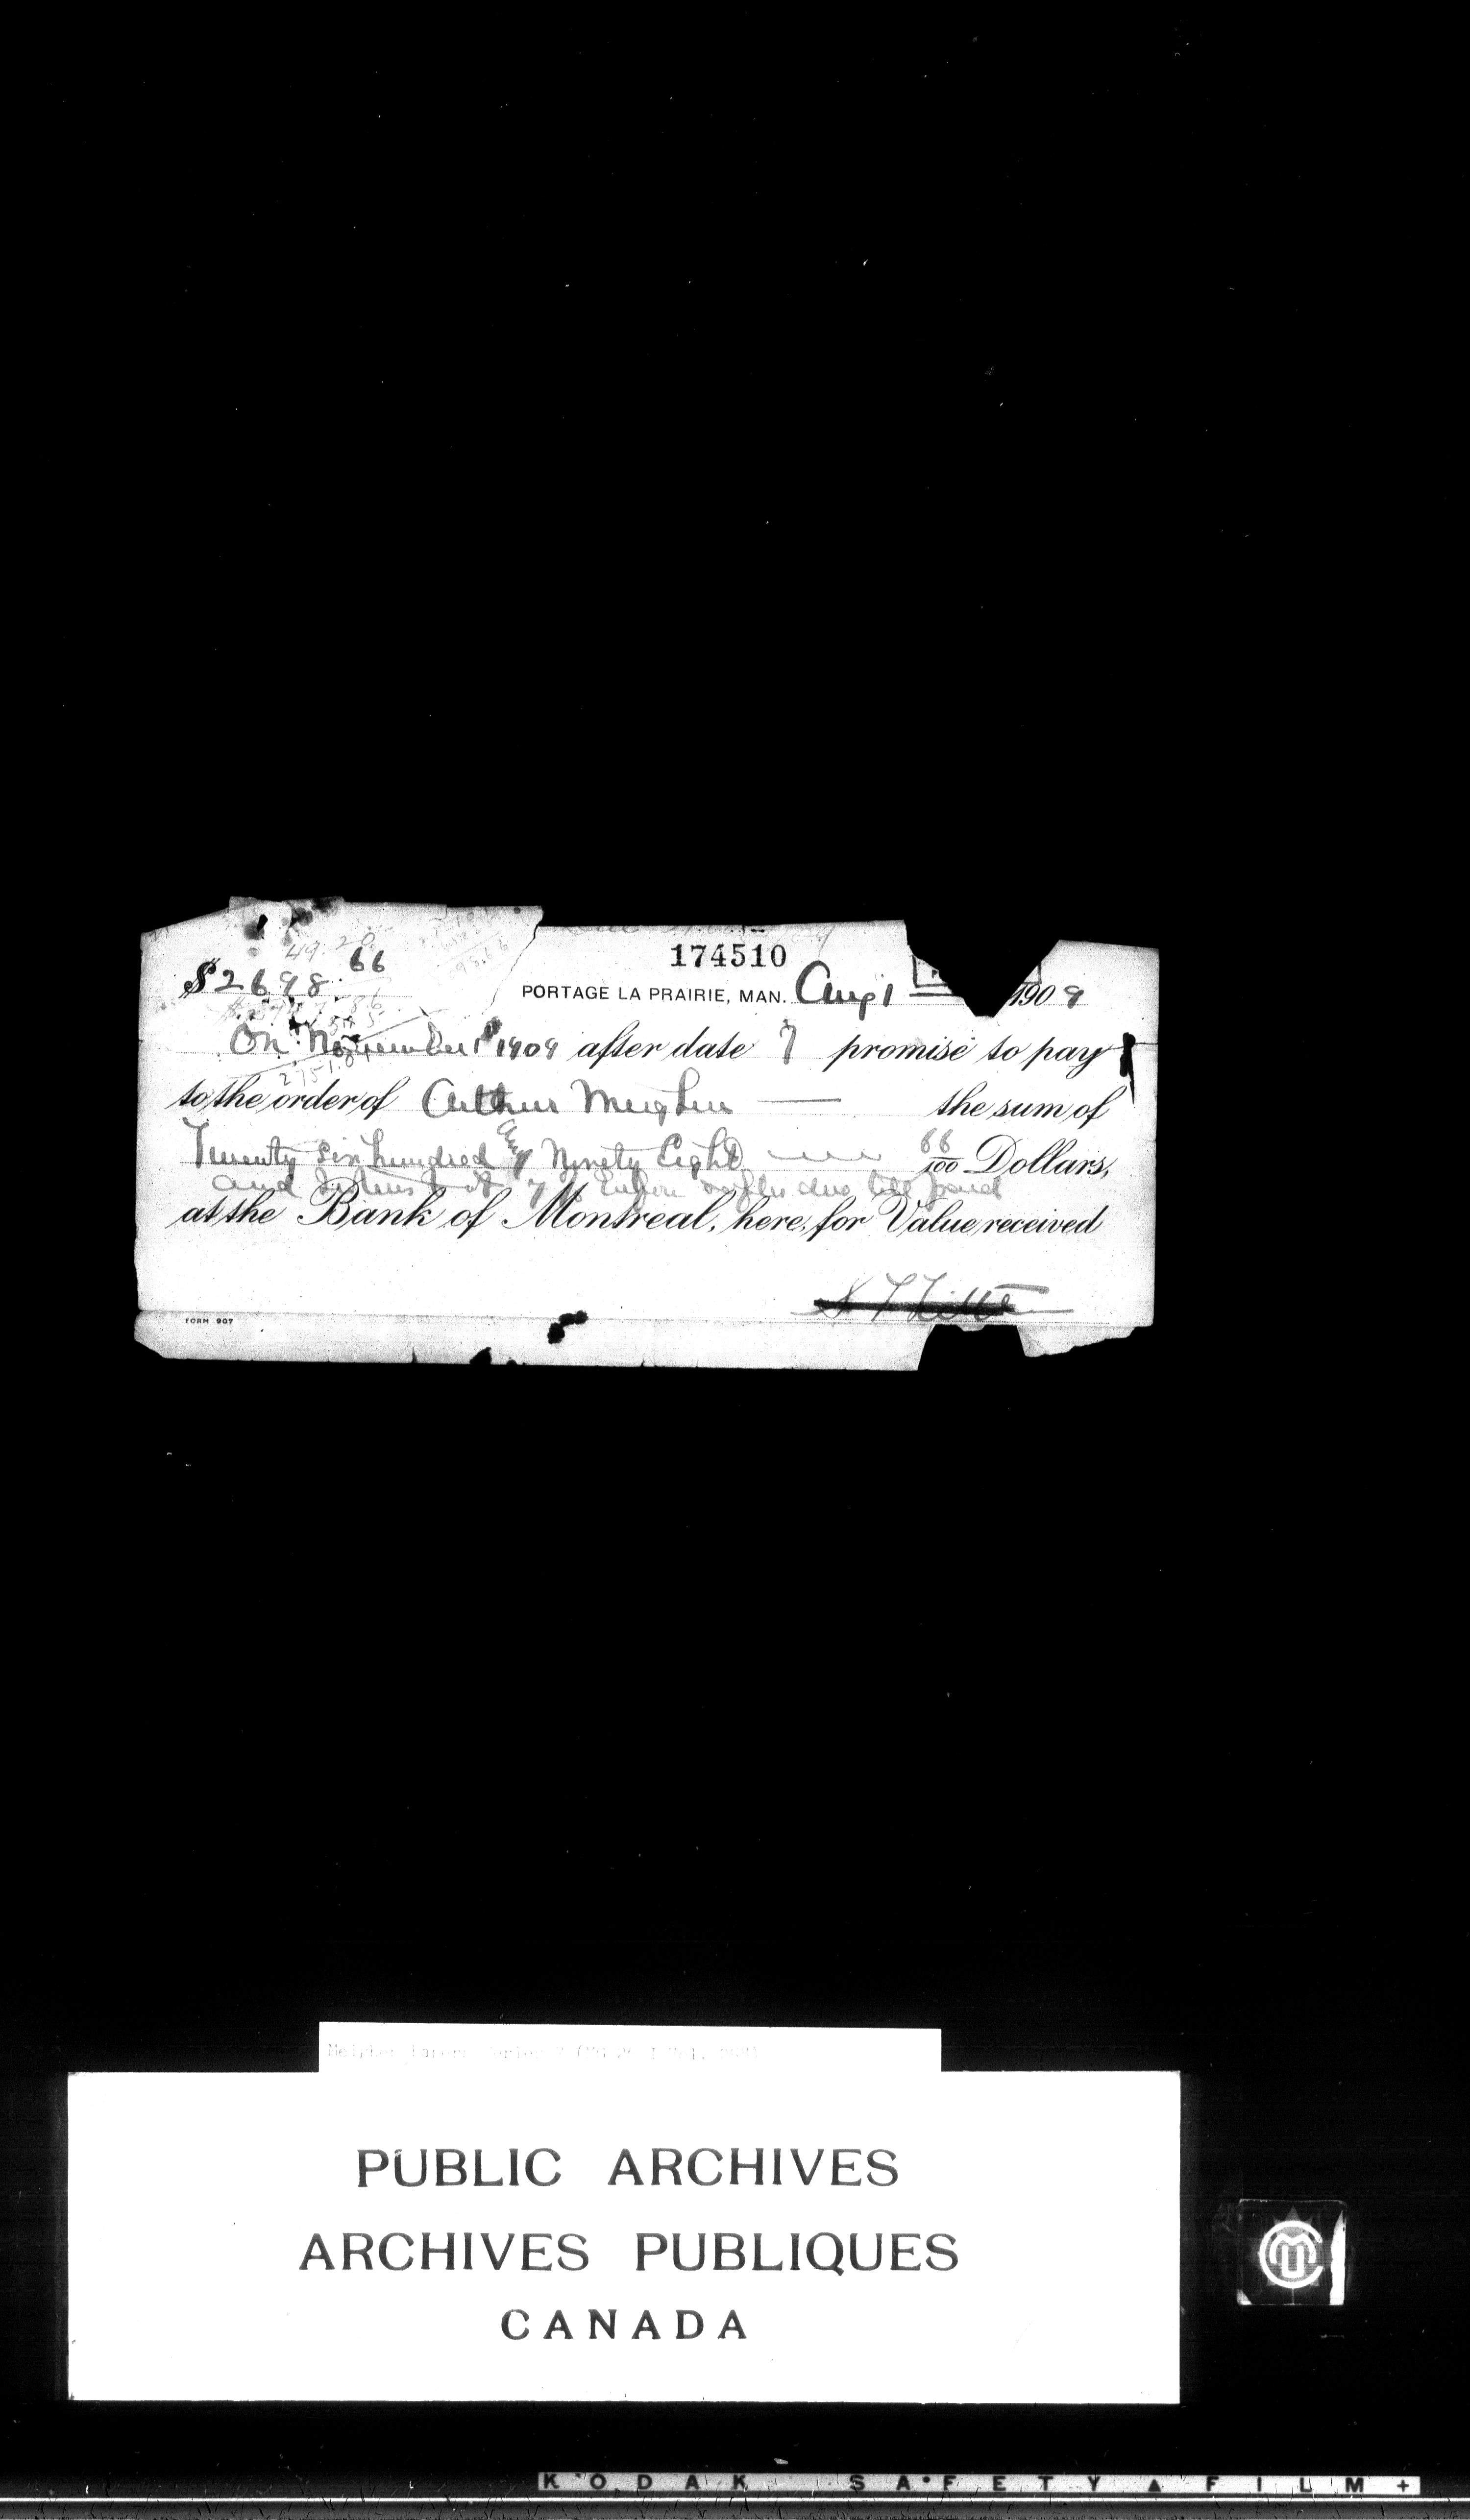 49.20
174510
$2698.66
PORTAGE LA PRAIRIE, MAN. Aug 1 1909
On November 1st 1909 after date I promise to pay
2751.0
to the order of Arthur Meighen the sum of
Twenty six hundred and Ninety Eight 66/100 Dollars,
and Interest at 7 before & after due till paid
at the Bank of Montreal, here, for Value received
FORM 907
PUBLIC ARCHIVES
ARCHIVES PUBLIQUES
CANADA
KODAK SAFETY FILM